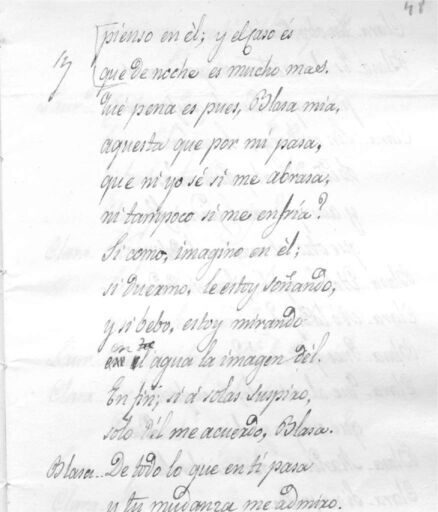 48
pienso en él; y el caso es
17 que de noche es mucho maes.
Qué pena es pues, Blasa mia,
aquesta que por mi pasa,
que ni yo sé si me abrasa,
ni tampoco si me enfria?
Si como, imagino en él;
si duermo, le estoy soñando,
y si bebo, estoy mirando
en el agua la imagen dél.
En fin; si á solas suspiro,
solo dél me acuerdo, Blasa.
Blasa.. De todo lo que en tí pasa
y tu mudanza me admiro.